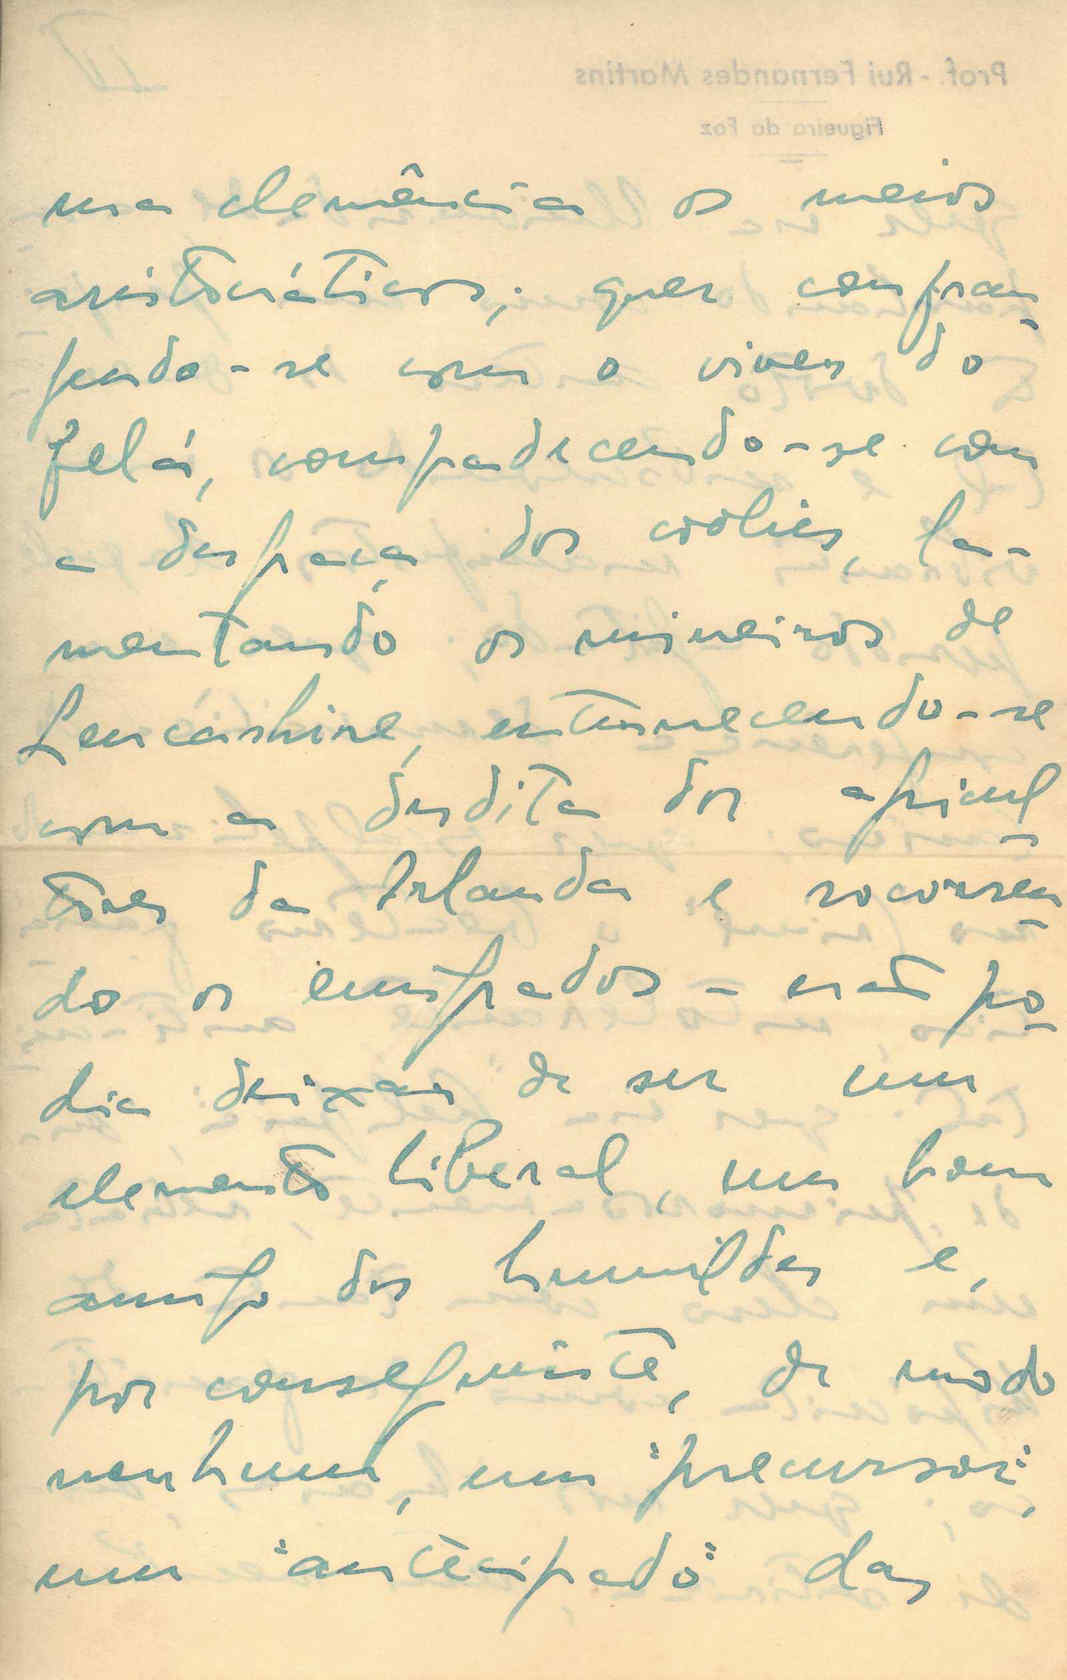 ma clemência os meios
aristocráticos; quer confran
gendo-se com o viver do
felá, compadecendo-se com
a desgraça dos coolies, la-
mentando os mineiros de
Lencashire, enternecendo-se
com a desdita dos agricul
tores da Irlanda e socorren
do os emigrados - não po
dia deixar de ser um
elemento liberal, um bom
amigo dos humildes e,
por conseguinte, de modo
nenhum, um "precursor",
um "antecipado" das
Prof. - Rui Fernandes Martins
Figueira da Foz